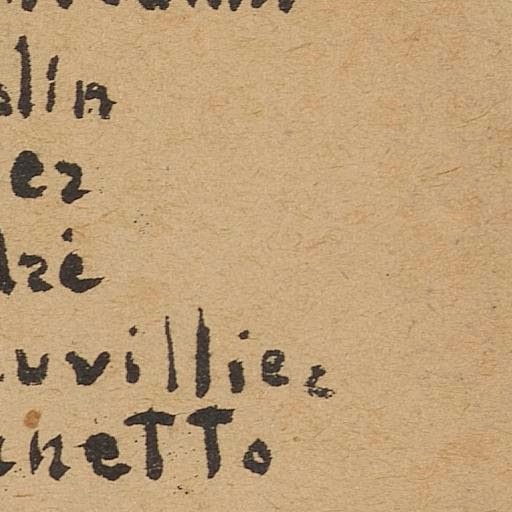 olin
er
dré
uvillier
netto